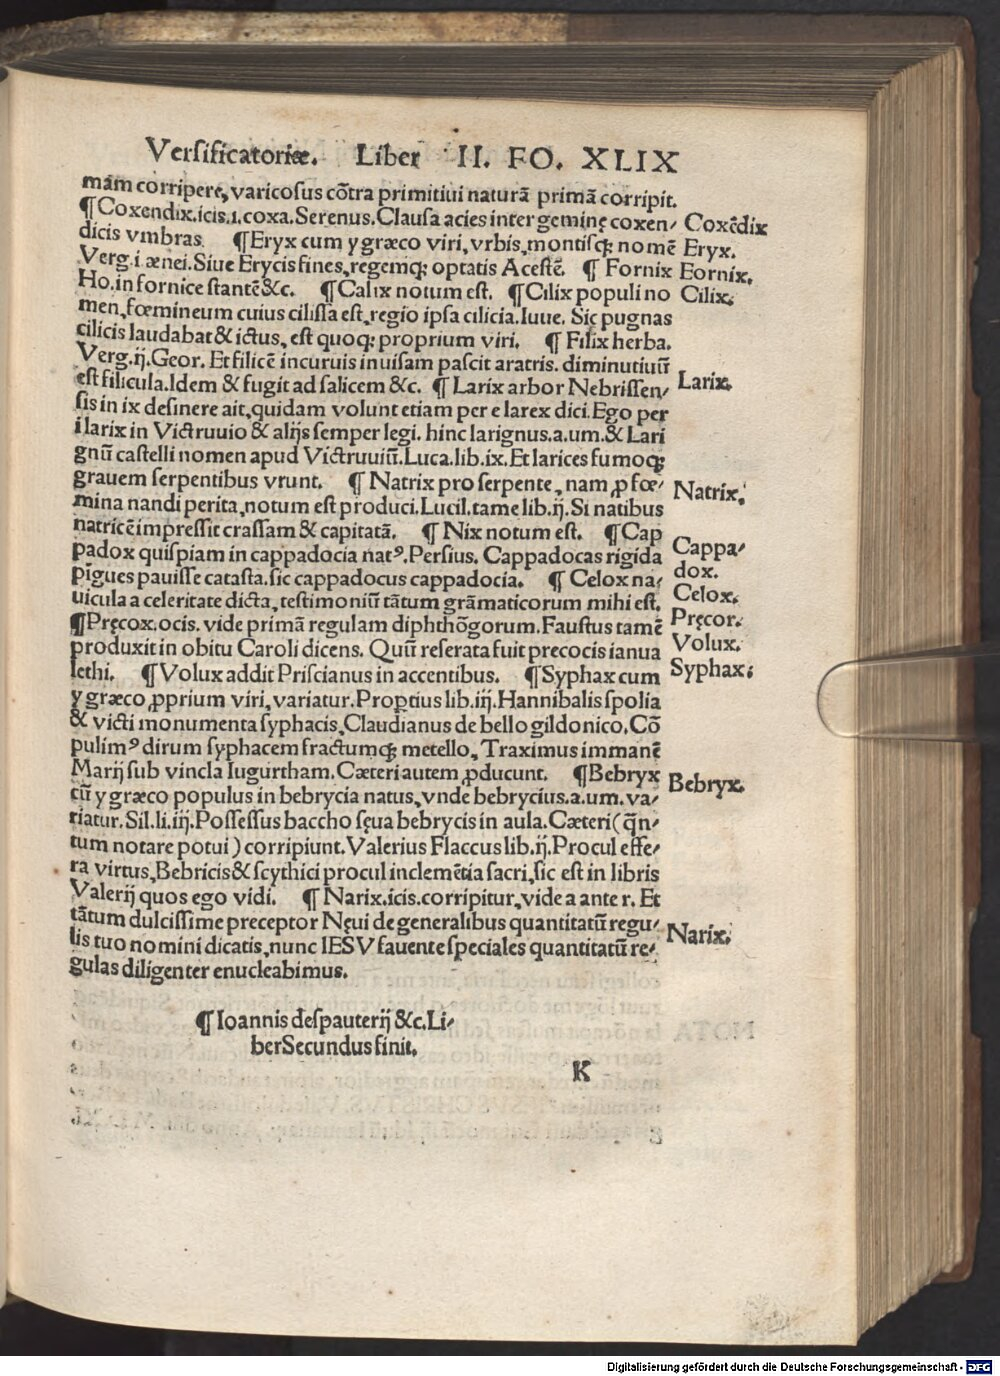 Versificatoriæ. Liber II. FO. XLIX
mam corripere, varicosus cōtra primitiui naturā primā corripit.
¶Coxendix.icis.i.coxa.Serenus.Clausa acies inter geminę coxen⸗ Coxēdix
dicis vmbras. ¶Eryx cum y græco viri, vrbis, montisq; nomē Eryx.
Verg.i ænei.Siue Erycis fines, regemq; optatis Acestē. ¶ Fornix Fornix.
Ho.in fornice stantē &c. ¶Calix notum est. ¶Cilix populi no Cilix.
men, fœmineum cuius cilissa est, regio ipsa cilicia.Iuue. Sic pugnas
cilicis laudabat & ictus, est quoq; proprium viri. ¶ Filix herba.
Verg.ij.Geor. Et filicē incuruis inuisam pascit aratris. diminutiuū
est filicula.Idem & fugit ad salicem &c. ¶ Larix arbor Nebrissen⸗ Larix.
sis in ix desinere ait, quidam volunt etiam per e larex dici.Ego per
i larix in Victruuio & alijs semper legi. hinc larignus.a.um.& Lari
gnū castelli nomen apud Victruuiū.Luca.lib.ix.Et larices fumoq;
grauem serpentibus vrunt. ¶ Natrix pro serpente, nam ꝓ fœ⸗ Natrix.
mina nandi perita, notum est produci.Lucil.tame lib.ij.Si natibus
natricē impressit crassam & capitatā. ¶ Nix notum est. ¶Cap Cappa⸗
padox quispiam in cappadocia natꝰ.Persius. Cappadocas rigida dox.
pīgues pauisse catasta.sic cappadocus cappadocia. ¶ Celox na⸗ Celox.
uicula a celeritate dicta, testimoniū tātum grāmaticorum mihi est.
¶Pręcox.ocis. vide primā regulam diphthōgorum.Faustus tamē Pręcor.
produxit in obitu Caroli dicens. Quū reserata fuit precocis ianua Volux.
lethi. ¶Volux addit Priscianus in accentibus. ¶Syphax cum Syphax:
y græco ꝓprium viri, variatur. Proptius lib.iij.Hannibalis spolia
& victi monumenta syphacis.Claudianus de bello gildonico.Cō
pulimꝰ dirum syphacem fractumq; metello, Traximus immanē
Marij sub vincla Iugurtham.Cæteri autem ꝓducunt. ¶Bebryx Bebryx.
cū y græco populus in bebrycia natus, vnde bebrycius.a.um.va⸗
riatur.Sil.li.iij.Possessus baccho sęua bebrycis in aula.Cæteri(q̄n⸗
tum notare potui) corripiunt.Valerius Flaccus lib.ij.Procul effe⸗
ra virtus, Bebricis & scythici procul inclemētia sacri, sic est in libris
Valerij quos ego vidi. ¶ Narix.icis.corripitur, vide a ante r. Et
tātum dulcissime preceptor Nęui de generalibus quantitatū regu⸗ Narix.
lis tuo nomini dicatis, nunc IESV fauente speciales quantitatū re⸗
gulas diligenter enucleabimus.
¶Ioannis despauterij &c.Li⸗
berSecundus finit.
K
Digitalisierung gefördert durch die Deutsche Forschungsgemeinschaft - DFG